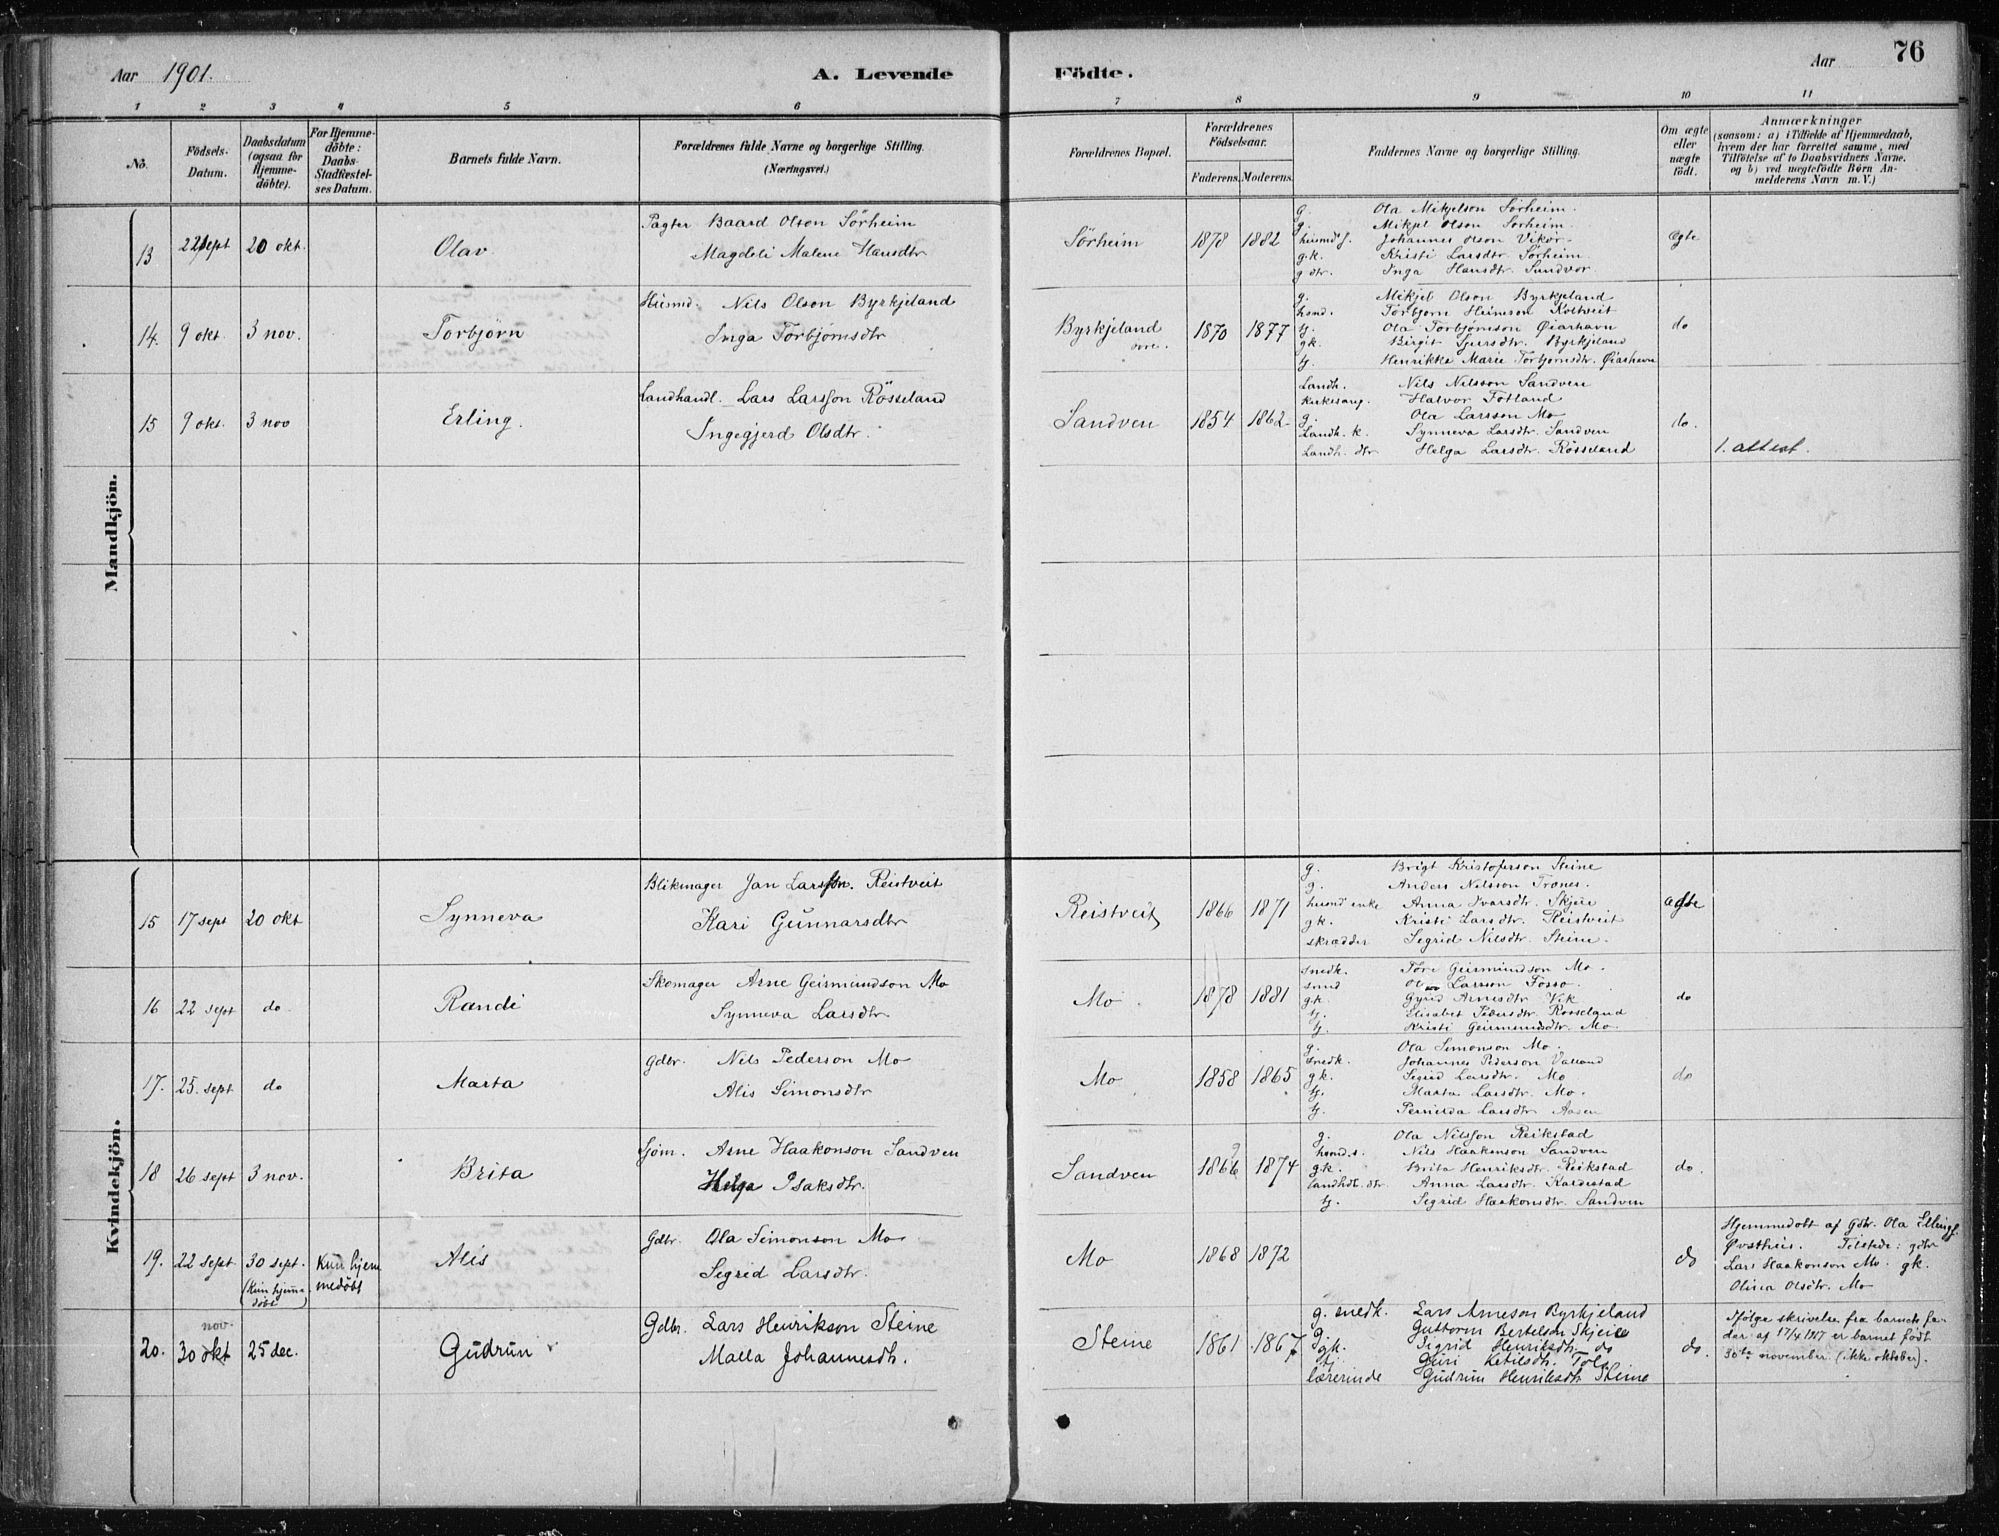 Aar 1901.
A. Levende
Födte.
Aar
76
1 2 3 4 5 6 7 8 9 10 11
No.
Födsels-Datum.
Daabsdatum (ogsaa for Hjemmedöbte).
For Hjemmedöbte: Daabs-Stadfæstelses Datum.
Barnets fulde Navn.
Forældrenes fulde Navne og borgerlige Stilling. (Næringsvei.)
Forældrenes Bopæl.
Forældrenes Födselsaar.
Faderens. Moderens.
Faddernes Navne og borgerlige Stilling.
Om ægte eller uægte födt.
Anmærkninger
(saasom: a) i Tilfælde af Hjemmedaab,
hvem der har forrettet samme, med
Tilföielse af to Daabsvidners Navne.
og b) ved uægtefödte Börn An-
melderens Navn m. V.)
Mandkjön.
13 22 sept 20 okt. Olav
Pagter Baard Olson Sörheim
Magdeli Malene Hansdtr
Sörheim 1878 1882
g. Ola Mikjelson Sörheim.
g. Mikjel Olson Sörheim
husmd's. Johannes Olson Vikör
g.k. Kristi Larsdtr. Sörheim
g dtr. Inga Hansdtr. Sandvor
ægte
14. 9 okt. 3 nov. Torbjörn
Husmd. Nils Olson Byrkjeland
Inga Torbjörnsdtr
Byrkjeland 1870 1877
g. Mikjel Olson Byrkjeland
husmd. Torbjörn Heimson
tj. Ola Torbjörnson Øiarhavn
gk. Birgit Byrkjeland
tj. Henrikka Marie Torbjörnsdtr. Øiarhavn
do
15 9 okt. 3 nov Erling.
Landhandl. Lars Larsson Rösseland
Ingegjerd Olsdtr.
Sandven 1854 1862
Landh. Nils Nilsson Sandven
Kirkesang. Halvor Fotland
g. Ola Larsson Mo
Landh. k. Synneva Larsdtr. Sandven
Landh. dtr Helga Larsdtr. Rösseland
do.
1. attest.
Kvindekjön.
15 17 sept 20 okt Synneva
Blikmager Jan Larsson. Reistveit
Kari Gunnarsdtr
Reistveit 1866 1871
g. Brigt Kristoferson Steine
g. Anders Nilsson Trones.
husmd enke Anna Ivarsdtr. Skjeie
gk. Kristi Larsdtr. Reistveit
skrædder Segrid Nilsdtr. Steine.
ægte
16 22 sept do. Randi
Skomager Arne Geirmundson Mo
Synneva Larsdtr
Mo. 1878 1881
snedk. Tore Geirmundson Mo.
smed Larsson Fosso
gk. Gyrid Arnesdtr. Vik
tj. Elisabet Rösseland
tj. Kristi Geirmundsdtr. Mo.
do
17. 25. sept do Marta
Gdbr. Nils Pederson Mo
Alis Simonsdtr
Mo 1858 1865
g. Ola Simonson Mo.
snedk. Johannes Pederson Valland
gk. Segrid Larsdtr. Mo
tj. Marta Larsdtr. Mo.
tj. Pernilda Larsdtr Aasen
do
18 26 sept 3 nov. Brita
Sjöm. Arne Haakonson Sandven
Helga Isaksdtr.
Sandven 1866 1874
g. Ola Nilsson Reikstad
husmd.s. Nils Haakonson Sandven
gk. Brita Henriksdtr. Reikstad
landhdl. dtr Anna Larsdtr. Kaldestad
tj. Segrid Haakonsdtr. Sandven
do.
19. 22 sept 30 sept. (Kun hjemmedöbt) Kun hjemmedöbt Alis
Gdbr. Ola Simonson Mo.
Segrid Larsdtr.
Mo 1868 1872
do
Hjemmedöbt af gdr. Ola Ellings.
Øvsthus. Tilstede: gdbr
Lars Haakonson Mo. gk.
Olina Olsdtr. Mo
20. nov. 30 okt 25 dec. Gudrun
Gdbr. Lars Henrikson Steine
Malla Johannesdtr.
Steine 1861 1867
g. snedk. Lars Arneson Byrkjeland
g. Guttorm Bertelson Skjeie
gk. Sigrid Henriksdtr. do
tj. Guri Ketilsdtr.
lærerinde Gudrun Henriksdtr Steine
do.
Ifölge skrivelse fra barnets fa-
der af 17/4 1917 er barnet födt
30te november (ikke oktober).